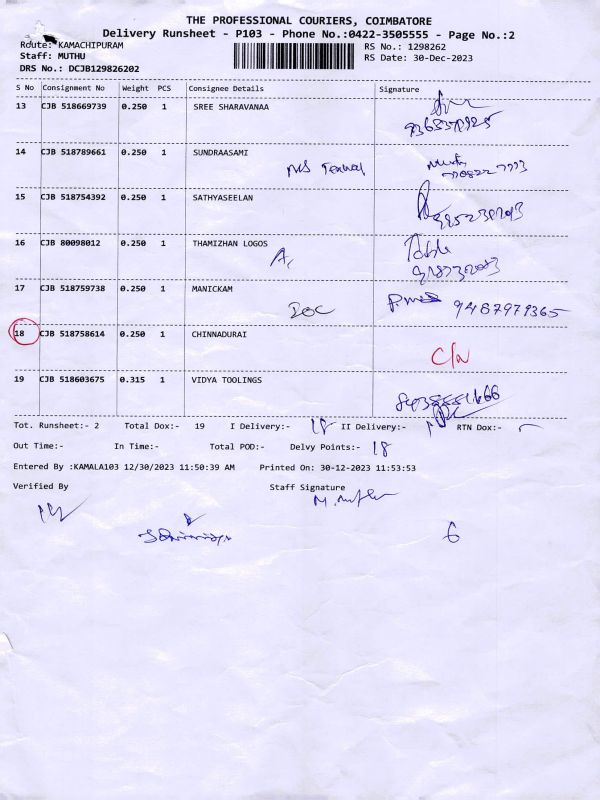 THE PROFESSIONAL COURIERS, COIMBATORE
Delivery Runsheet - P103 - Phone No.:0422-3505555 - Page No.:2
Route: KAMACHIPURAM RS No.: 1298262
Staff: MUTHU RS Date: 30-Dec-2023
DRS No.: DCJB129826202
S No Consignment No Weight PCS Consignee Details Signature
13 CJB 518669739 0.250 1 SREE SHARAVANAA
14 CJB 518789661 0.250 1 SUNDRAASAMI
15 CJB 518754392 0.250 1 SATHYASEELAN
16 CJB 80098012 0.250 1 THAMIZHAN LOGOS
17 CJB 518759738 0.250 1 MANICKAM
9487979365
18 CJB 518758614 0.250 1 CHINNADURAI
C/N
19 CJB 518603675 0.315 1 VIDYA TOOLINGS
Tot. Runsheet:- 2 Total Dox:- 19 I Delivery:- 18 II Delivery:- RTN Dox:-
Out Time:- In Time:- Total POD:- Delvy Points:- 18
Entered By :KAMALA103 12/30/2023 11:50:39 AM Printed On: 30-12-2023 11:53:53
Verified By Staff Signature
6